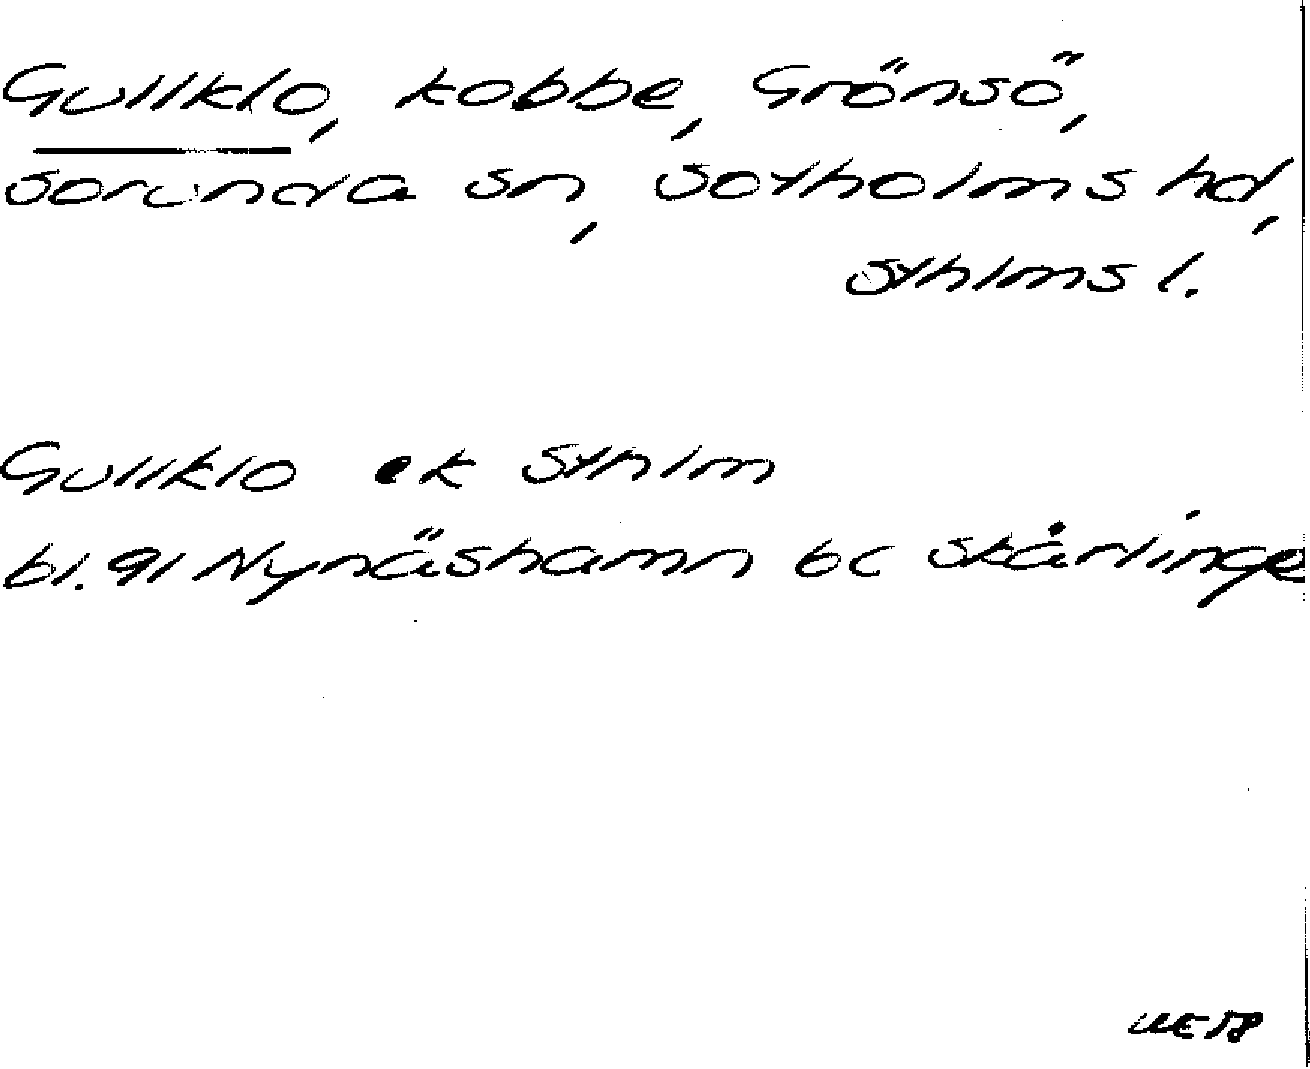 Gullklo, kobbe, Grönsö,
Sorunda sn, Sotholms hd,
Sthlms l.
Gullklo ek Sthlm
bl. 91 Nynäshamn bc Skårlinge
UE 58